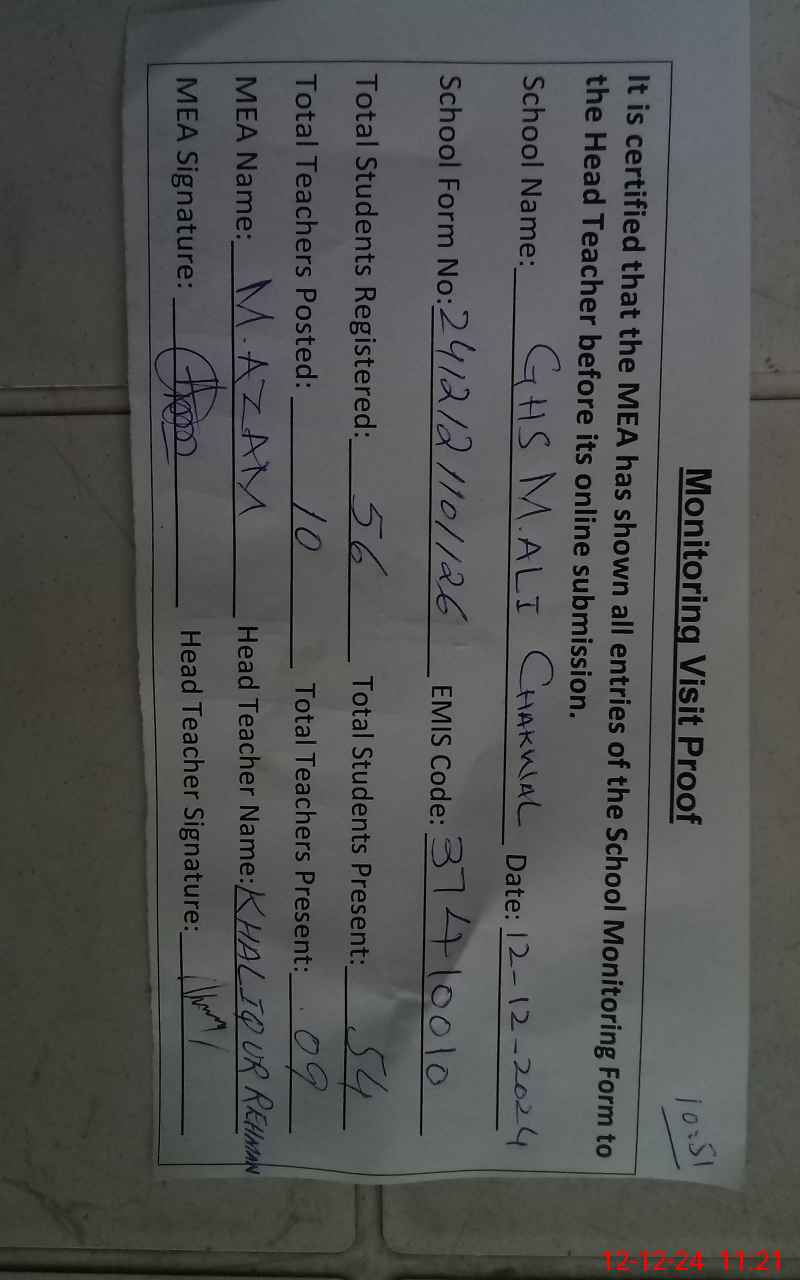 10:51
Monitoring Visit Proof
It is certified that the MEA has shown all entries of the School Monitoring Form to
the Head Teacher before its online submission.
School Name: GHS M.ALI CHAKWAL Date: 12-12-2024
School Form No: 2412121101126 EMIS Code: 37410010
Total Students Registered: 56 Total Students Present: 54
Total Teachers Posted: 10 Total Teachers Present: 09
MEA Name: M.AZAM Head Teacher Name: KHALIQ UR REHMAN
MEA Signature: Head Teacher Signature:
12-12-24 11:21